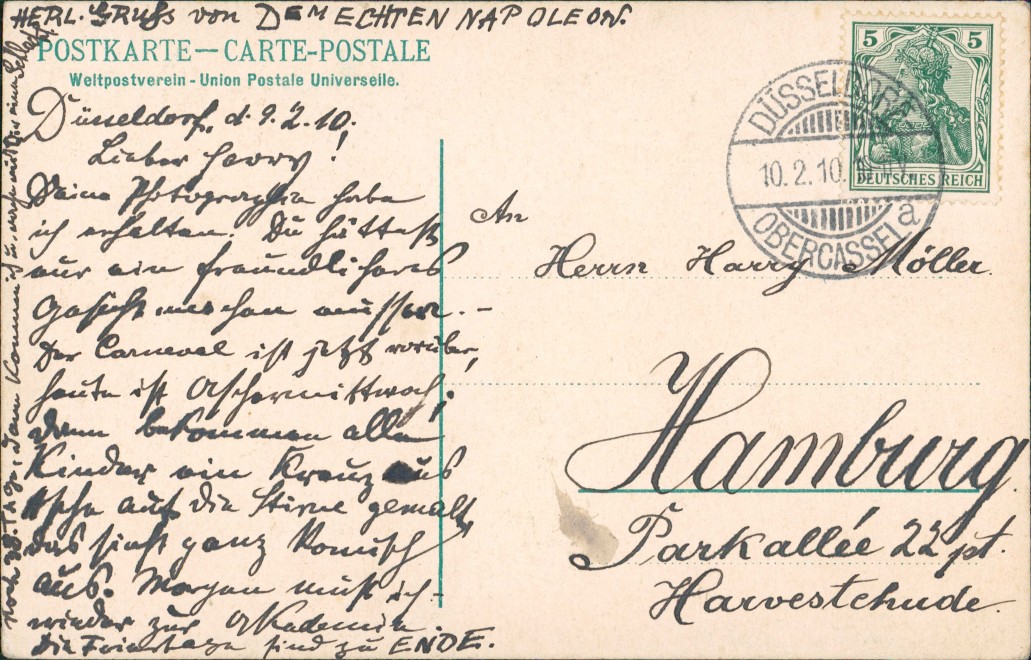 HERL. Gruß von DEM ECHTEN NAPOLEON.
POSTKARTE — CARTE-POSTALE
Weltpostverein - Union Postale Universelle.
Düsseldorf, d. 9.2.10.
Lieber Harry!
Deine Photographie habe
ich erhalten. Du hättest
nur ein freundlicheres
Gesicht machen müssen. -
Der Carneval ist jetzt vorüber,
heute ist Aschermittwoch,
dann bekommen alle
Kinder ein Kreuz aus
Asche auf die Stirne gemalt,
das sieht ganz komisch
aus. Morgen muß ich
wieder zur Akademie.
Die Feiertage sind zu ENDE.
Noch 38 Tage, dann komme ich
5 5
DEUTSCHES REICH
DÜSSELDORF
10.2.10.
OBERCASSEL
a
An
Herrn Harry Möller.
Hamburg
Parkallée 22 pt.
Harvestehude.